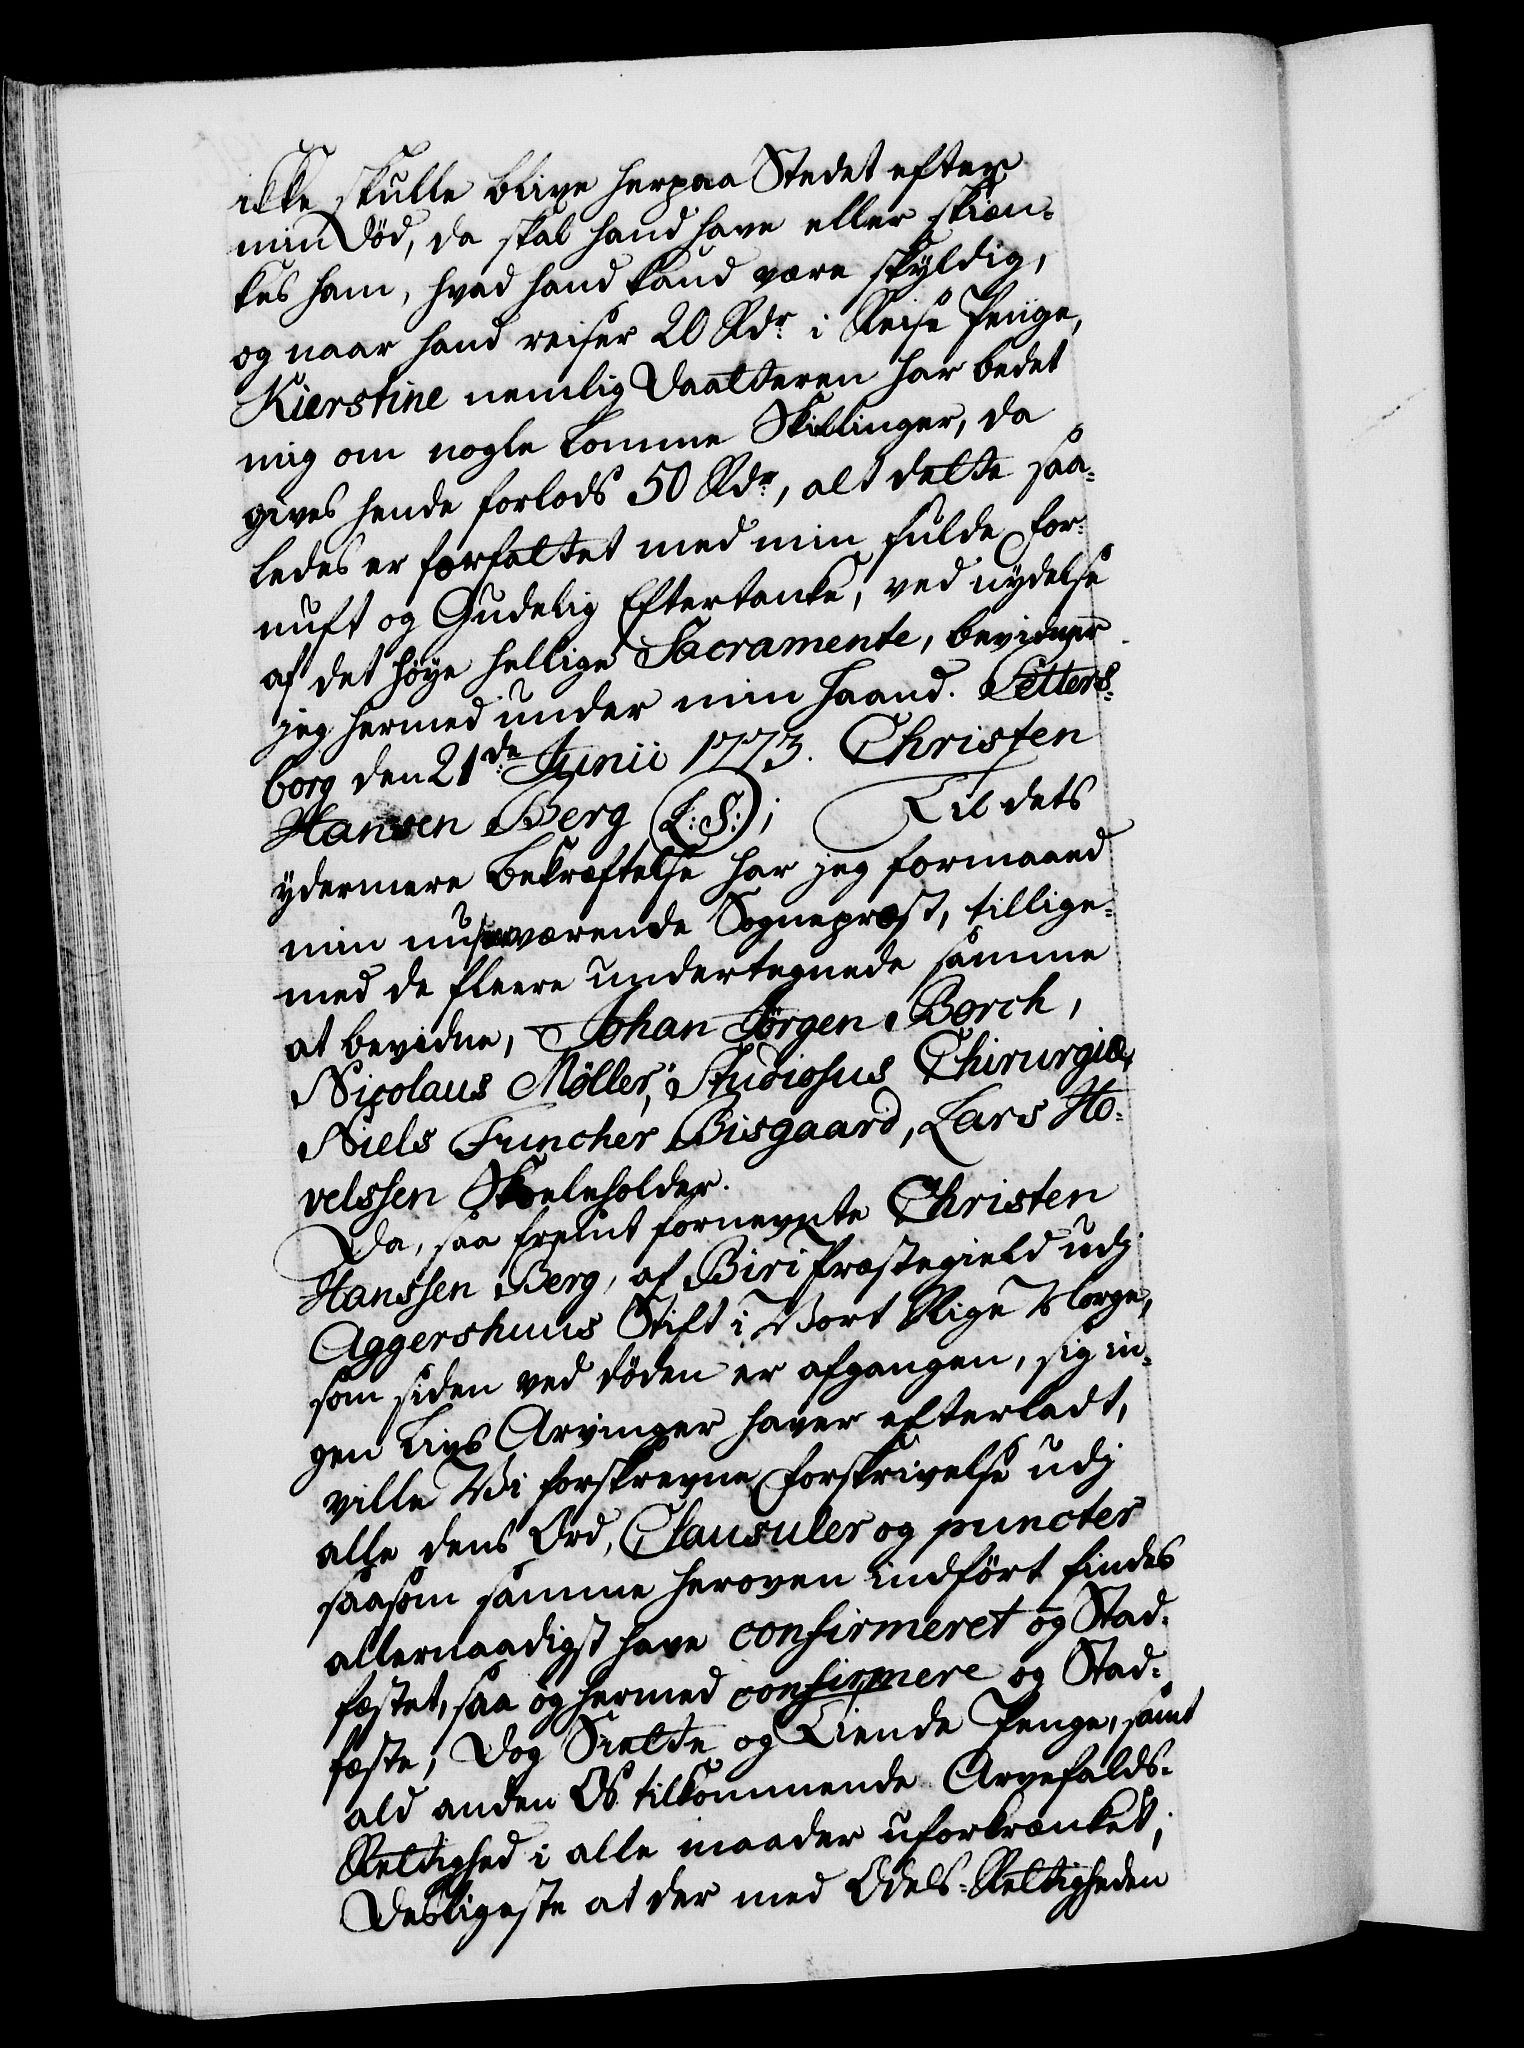 ikke skulle blive herpaa Stedet efter
min Död, da skal hand have eller skien-
kes ham, hvad hand kand være skyldig,
og naar hand reiser 20 Rdr i Reise Penge,
Kierstine nemlig Daatteren har bedet
mig om nogle Lomme Skillinger, da
gives hende forlods 50 Rdr, alt dette saa-
ledes er forfattet med min fulde For-
nuft og Gudelig Eftertanke, ved nydelse
af det høye hellige Sacramente, bevidner
jeg hermed under min Haand. Petters-
borg den 21de Junii 1773. Christen
Hansen Berg (L:S:); Til dets
ydermere Bekræftelse har jeg formaaed
min nuværende Sognepræst, tillige-
med de fleere undertegnede samme
at bevidne, Johan Jørgen Borch,
Nicolaus Møller, Studiosus Chirurgiæ,
Niels Funcher Bisgaard, Lars Ho-
velssen Skoleholder.
Da, saa fremt fornevnte Christen
Hanssen Berg, af Biri Præstegield udj
Aggershuus Stift i Vort Rige Norge,
som siden ved döden er afgangen, sig in-
gen Livs Arvinger haver efterladt,
ville Vi forskrevne Forskrivelse udj
alle dens Ord, Clausuler og puncter
saasom samme heroven indført findes
allernaadigst have confirmeret og Stad-
fæstet, saa og hermed confirmere og Stad-
fæste; Dog Siette og Tiende Penge, samt
ald anden Os tilkommende Arvefalds-
Rettighed i alle maader uforkrænket;
Desligeste at der med Odels-Rettigheden